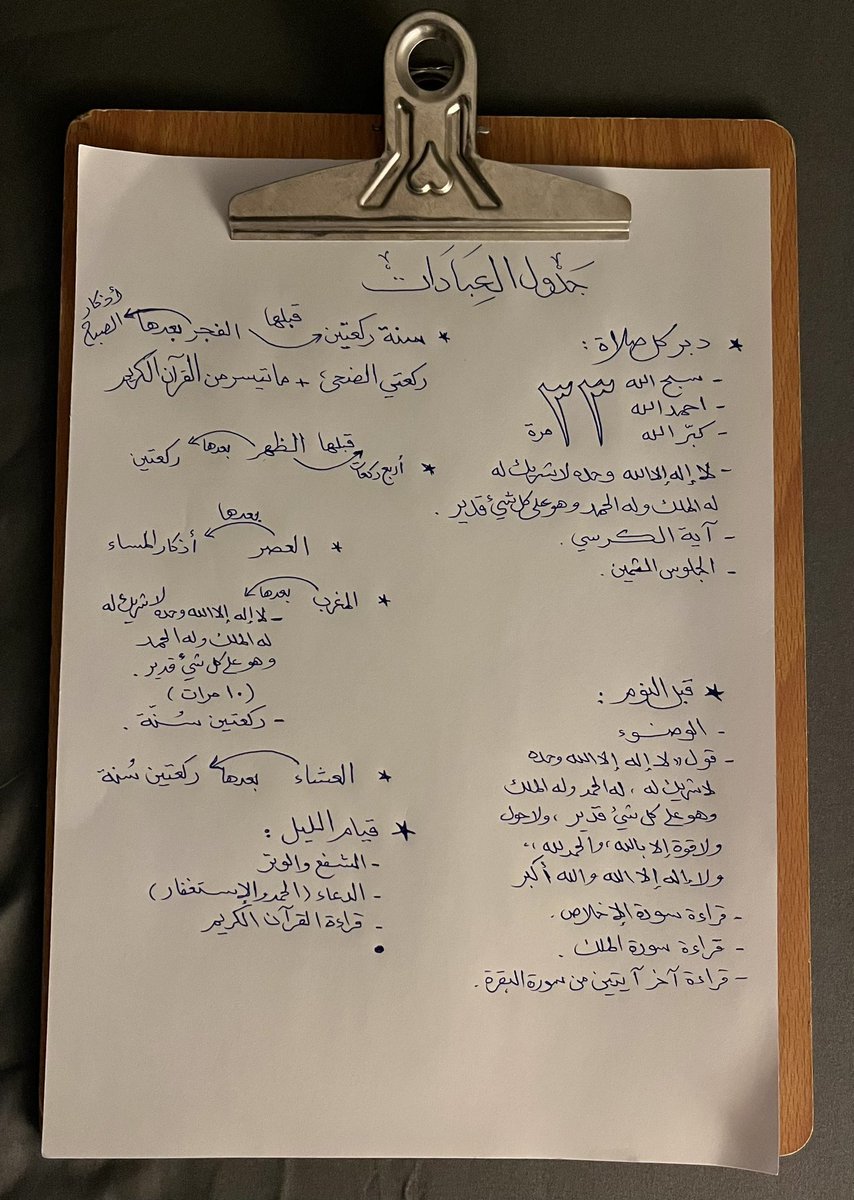 جَدْول العِبَادَات
★ دبر كل صلاة :
- سبح الله
- احمد الله
- كبّر الله
٣٣ مرة
- لا إله إلا الله وحده لا شريك له
له الملك وله الحمد وهو على كل شيئ قدير .
- آية الكرسي .
- الجلوس الثمين .
★ قبل النوم :
- الوضوء
- قول " لا إله إلا الله وحده
لا شريك له ، له الحمد وله الملك
وهو على كل شيئ قدير ، ولا حول
ولا قوة إلا بالله ، والحمد لله ،،
ولا إله إلا الله والله أكبر
- قراءة سورة الإخلاص .
- قراءة سورة الملك .
- قراءة آخر آيتين من سورة البقرة .
★ سنة ركعتين قبلها الفجر بعدها أذكار الصبح
ركعتي الضحى + ما تيسر من القرآن الكريم
★ أربع ركعات قبلها الظهر بعدها ركعتين
★ العصر بعدها أذكار المساء
★ المغرب بعدها
- لا إله إلا الله وحده لا شريك له
له الملك وله الحمد
وهو على كل شيئ قدير .
(١٠ مرات)
- ركعتين سُنّة .
★ العشاء بعدها ركعتين سُنة
★ قيام الليل :
- الشفع والوتر
- الدعاء (الحمد والإستغفار)
- قراءة القرآن الكريم